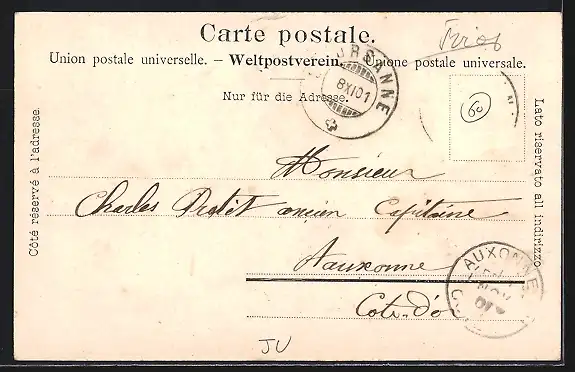 Carte postale.
Union postale universelle. – Weltpostverein. Unione postale universale.
Nur für die Adresse.
Côté réservé à l'adresse.
Lato riservato all indirizzo
URSANNE
8 XI 01
60
Monsieur
Charles ancien Capitaine
Auxonne
Côte-d'or
AUXONNE
JU